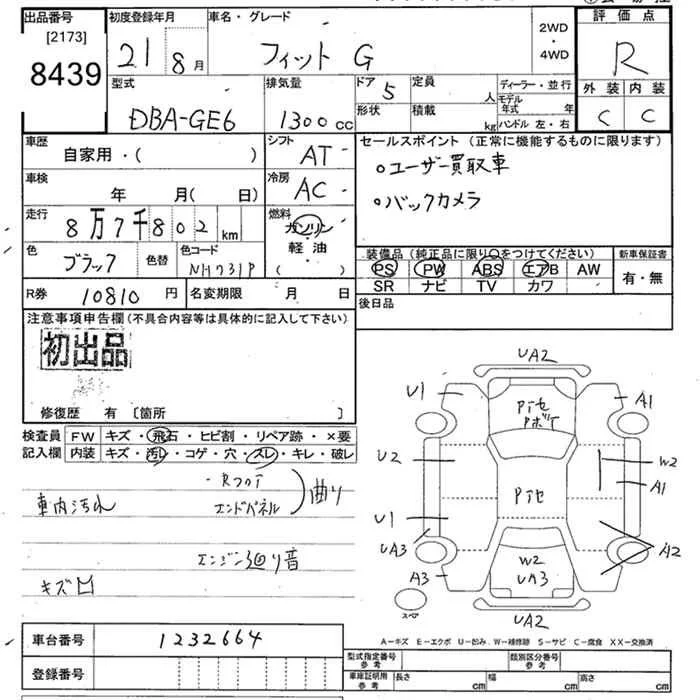 出品番号
[2173]
8439
初度登録年月
21 8月
車名・グレード
フィット G
2WD
・
4WD
評価点
R
外装 内装
C C
型式
DBA-GE6
排気量
1300cc
ドア
5
定員
人
形状
積載
kg
ディーラー・並行
モデル年式 年
ハンドル 左・右
車歴
自家用・( )
シフト
AT
セールスポイント (正常に機能するものに限ります)
○ユーザー買取車
○バックカメラ
車検
年 月( 日)
冷房
AC
走行
8万7千802km
燃料
ガソリン
軽油
( )
色
ブラック
色替
色コード
NH731P
装備品 (純正品に限り○をつけてください)
PS PW ABS エアB AW
SR ナビ TV カワ
新車保証書
有・無
R券 10810円
名変期限 月 日
後日品
注意事項申告欄(不具合内容等は具体的に記入して下さい)
初出品
修復歴 有 〔箇所 〕
検査員
記入欄
FW キズ・飛石・ヒビ割・リペア跡・×要
内装 キズ・汚レ・コゲ・穴・スレ・キレ・破レ
車内汚れ
・Rフロア
エンドパネル
曲り
エンジン廻り音
キズ凹
UA2
U1
A1
Pイセ
U2
W2
A1
Pイセ
U1
UA3
A2
W2
UA3
A3
スペア
UA2
A-キズ E-エクボ U-凹み W-補修跡 S-サビ C-腐食 XX-交換済
車台番号 1232664
登録番号
型式指定番号
参考
類別区分番号
参考
車庫証明用
参考
長さ cm
幅 cm
高さ cm